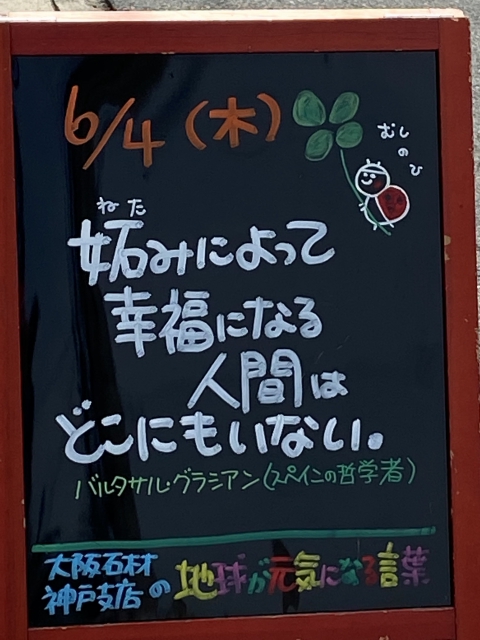 6/4(木)
むしのひ
ねた
妬みによって
幸福になる
人間は
どこにもいない。
バルタサル・グラシアン(スペインの哲学者)
大阪石材
神戸支店の地球が元気になる言葉